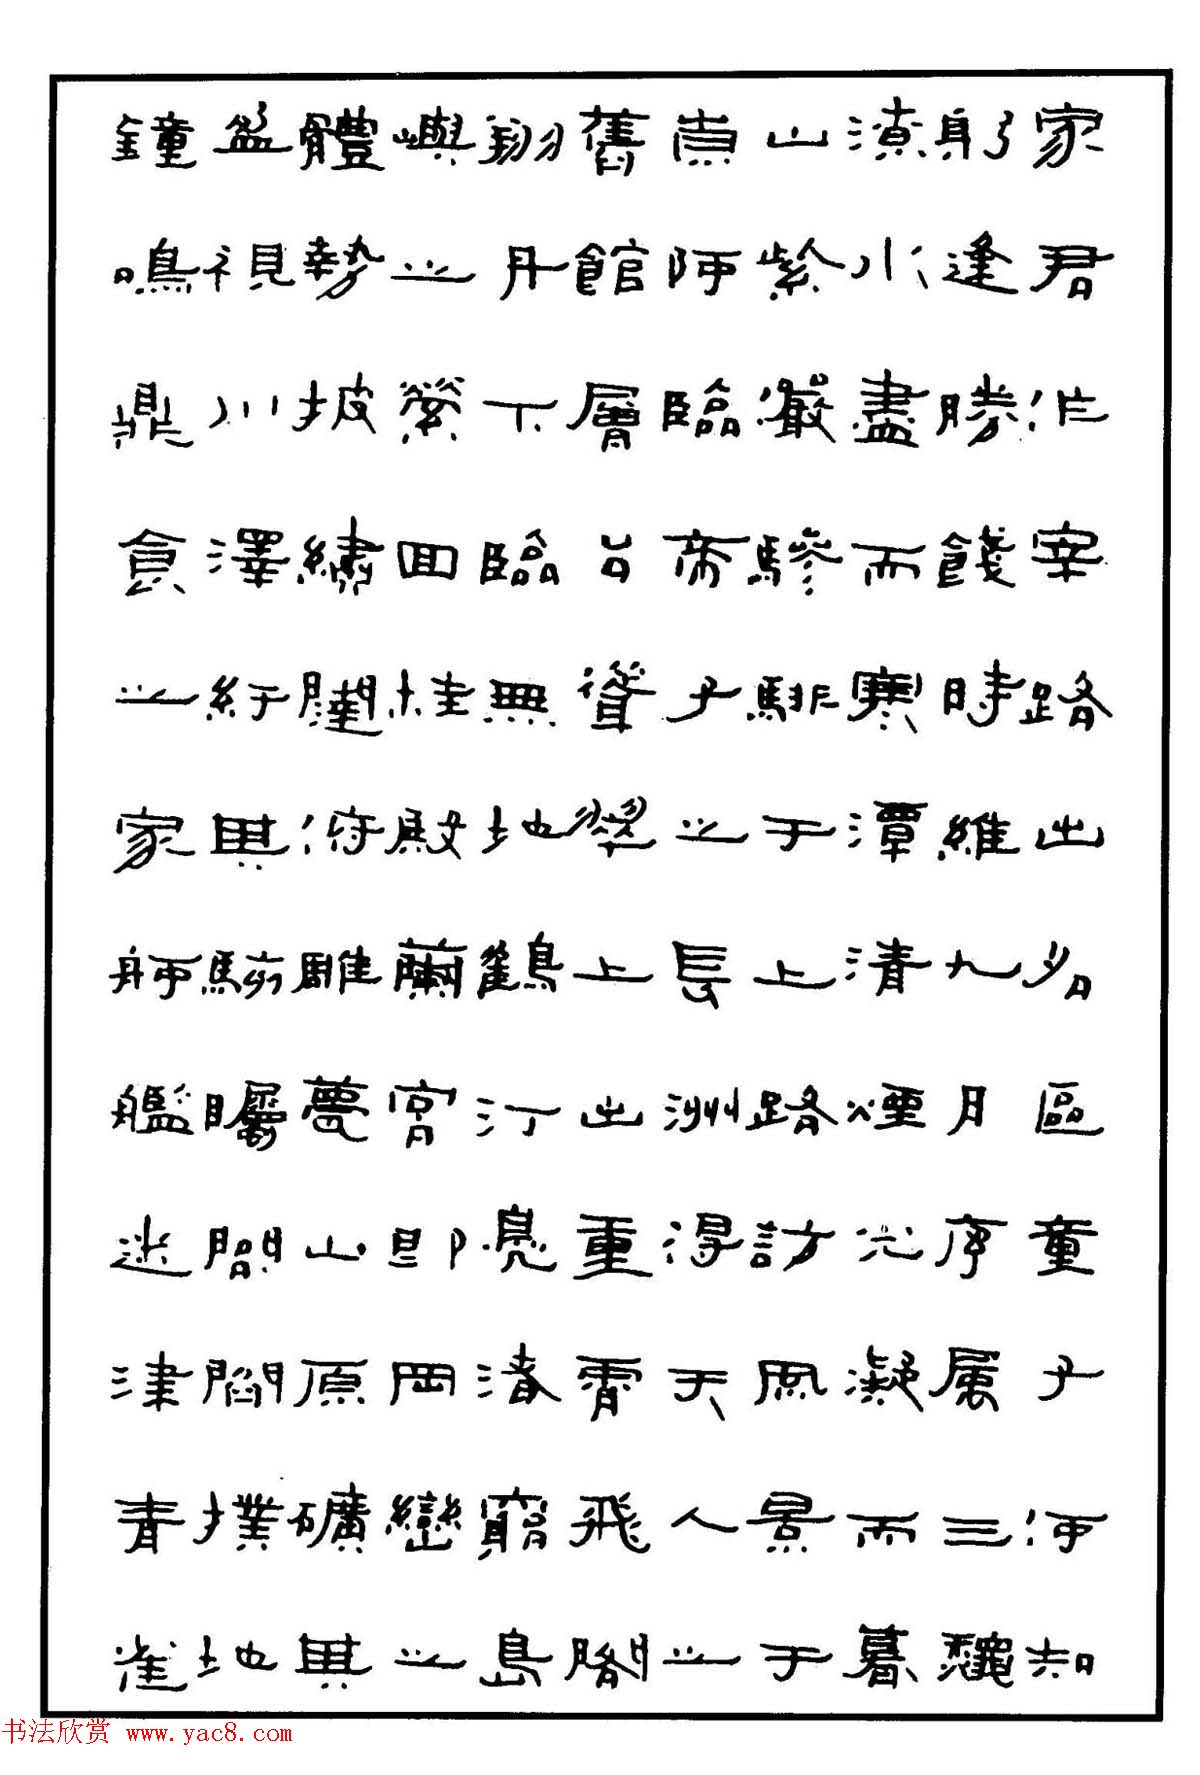 家君作宰路出名區童子何知
躬逢勝餞時維九月序属三龝
潦水盡而寒潭清煙光凝而暮
山紫儼驂騑于上路訪風景于
崇阿臨帝子之長洲得天人之
舊館層台聳翠上出重霄飛閣
翔丹下臨無地鶴汀鳧渚窮島
嶼之縈回桂殿蘭宮即岡巒之
體勢披繡闥俯雕甍山原礦其
盈視川澤紆其駭矚閭閻撲地
鐘鳴鼎食之家舸艦迷津青雀
书法欣赏 www.yac8.com